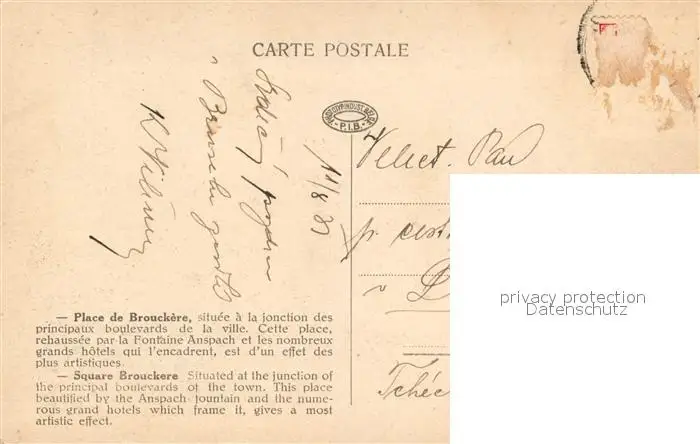 CARTE POSTALE
Srdečný pozdrav
z Bruselu zasílá
P.I.B.
11/8 31
Velect. Pan
p.
v
Tchéc
— Place de Brouckère, située à la jonction des
principaux boulevards de la ville. Cette place,
rehaussée par la Fontaine Anspach et les nombreux
grands hôtels qui l'encadrent, est d'un effet des
plus artistiques.
— Square Brouckere Situated at the junction of
the principal boulevards of the town. This place
beautified by the Anspach fountain and the nume-
rous grand hotels which frame it, gives a most
artistic effect.
privacy protection
Datenschutz